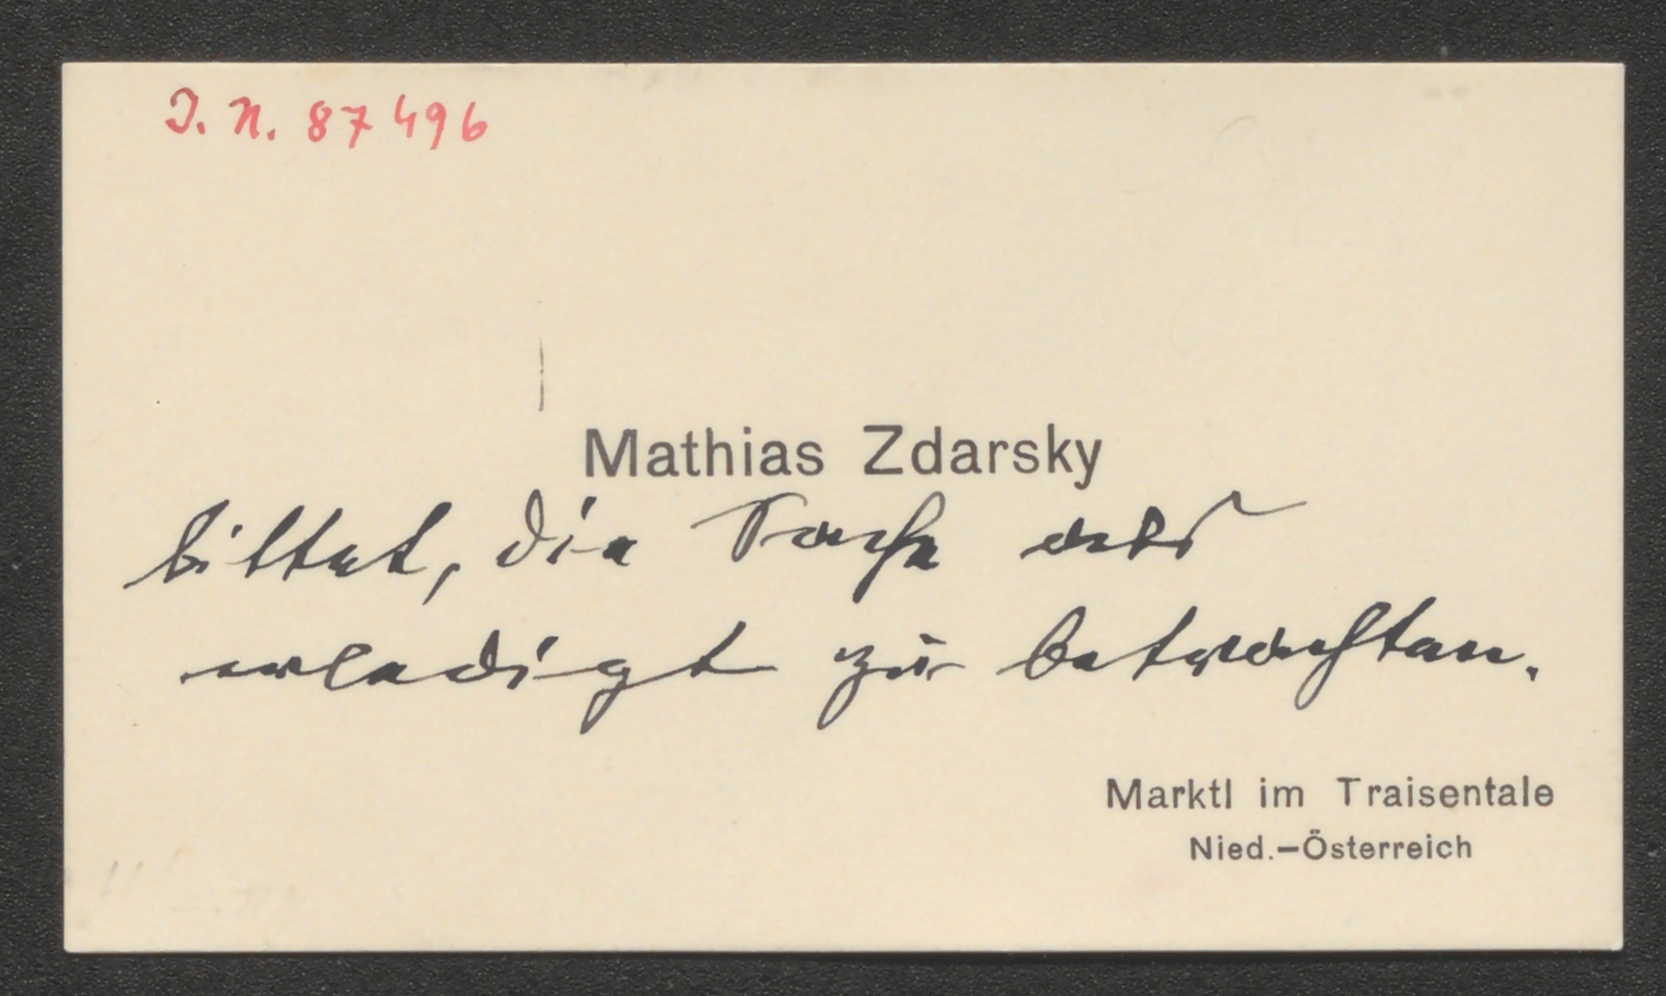 I. N. 87496
Mathias Zdarsky
bittet, die Sache als
erledigt zu betrachten.
Marktl im Traisentale
Nied.-Österreich